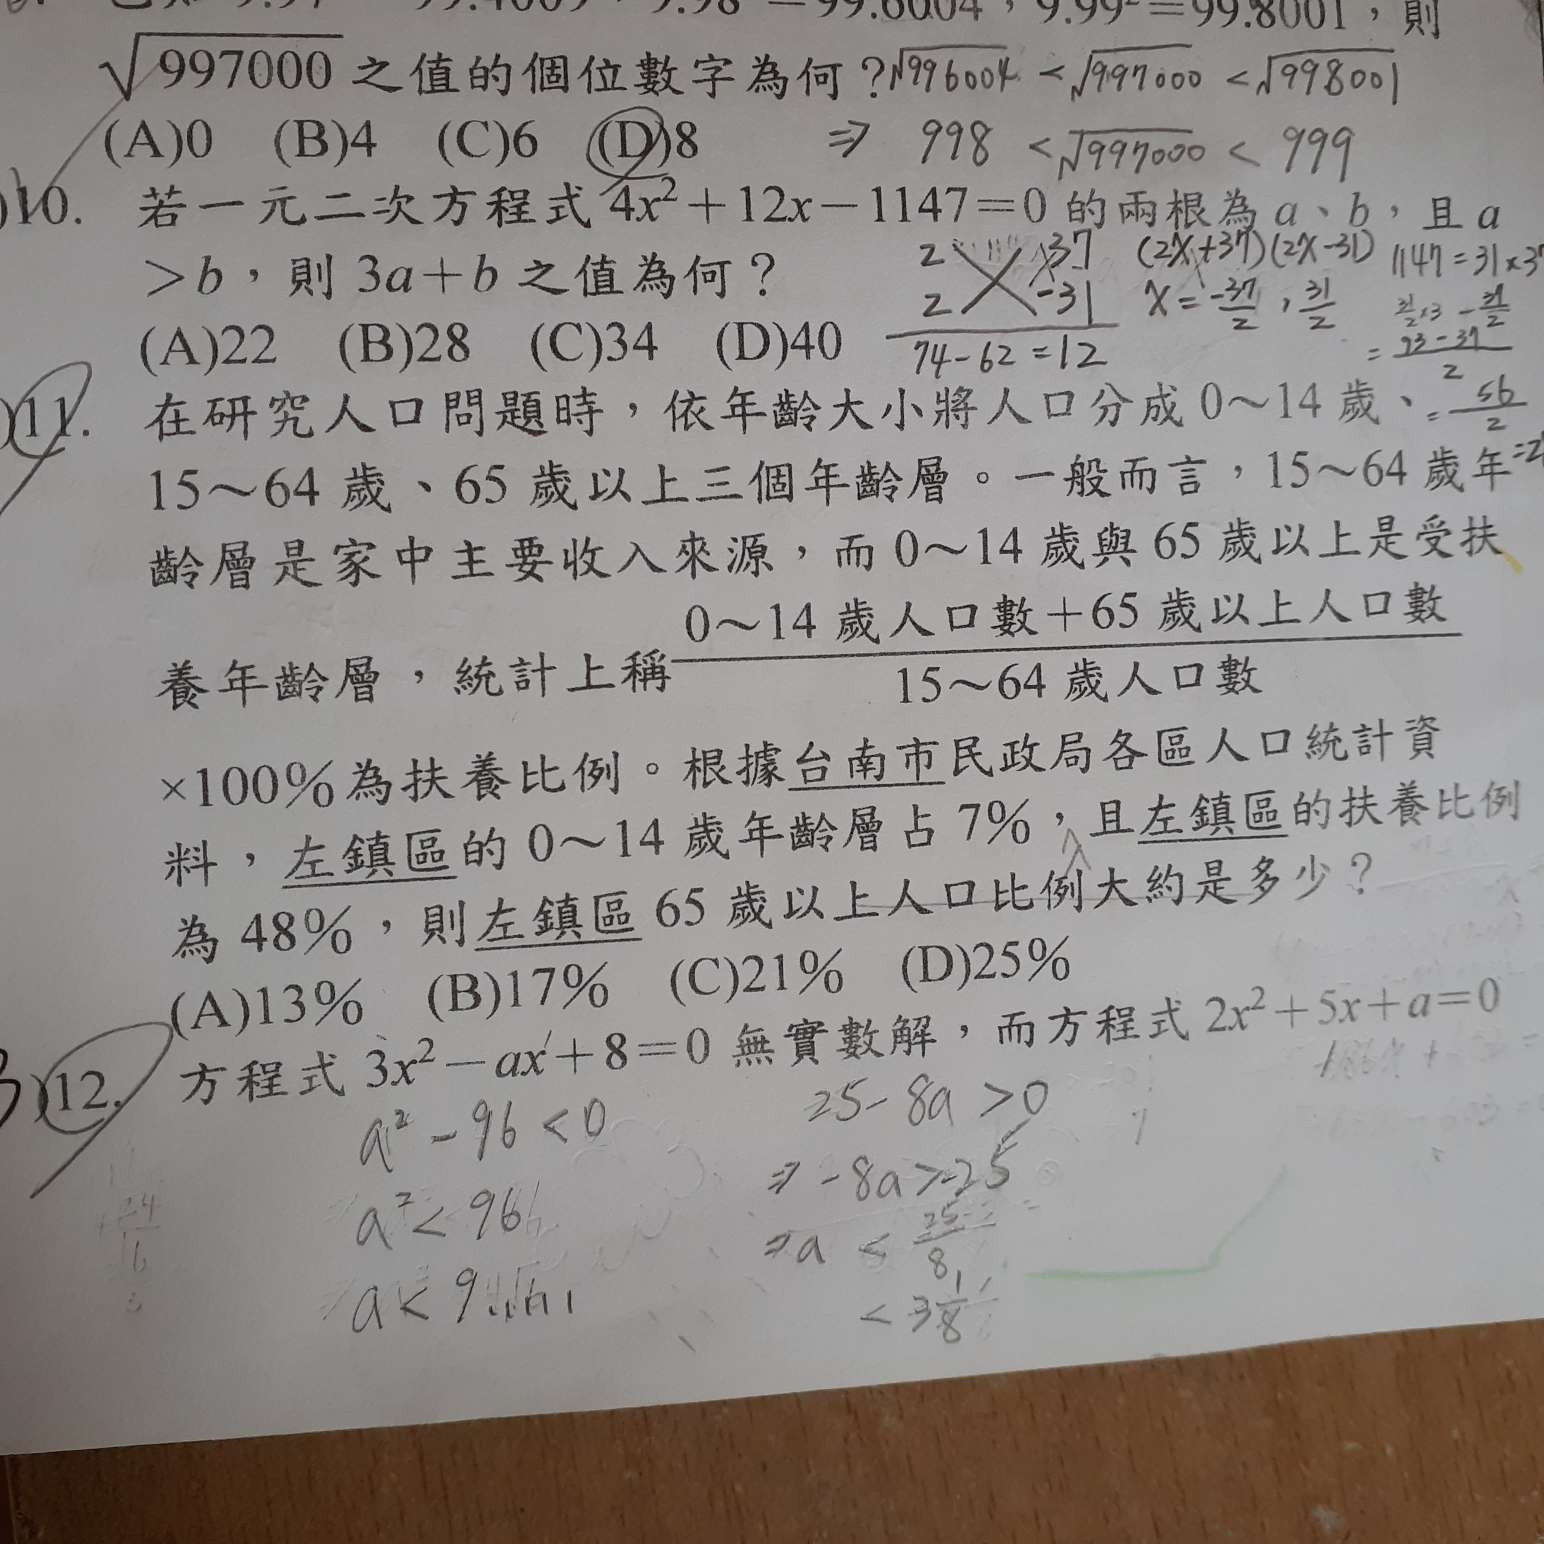 9.99²=99.8001，則
√997000 之值的個位數字為何？√996004 < √997000 < √998001
(A)0 (B)4 (C)6 (D)8 ⇒ 998 < √997000 < 999
10. 若一元二次方程式 4x²+12x-1147=0 的兩根為 a、b，且 a
>b，則 3a+b 之值為何？
2 37 (2x+37)(2x-31) 1147=31×37
2 -31 x=-37/2，31/2
(A)22 (B)28 (C)34 (D)40 74-62=12
11. 在研究人口問題時，依年齡大小將人口分成 0～14 歲、
= 56/2
15～64 歲、65 歲以上三個年齡層。一般而言，15～64 歲年
齡層是家中主要收入來源，而 0～14 歲與 65 歲以上是受扶
0～14 歲人口數＋65 歲以上人口數
養年齡層，統計上稱
15～64 歲人口數
×100%為扶養比例。根據台南市民政局各區人口統計資
料，左鎮區的 0～14 歲年齡層占 7%，且左鎮區的扶養比例
為 48%，則左鎮區 65 歲以上人口比例大約是多少？
(A)13% (B)17% (C)21% (D)25%
12. 方程式 3x²-ax+8=0 無實數解，而方程式 2x²+5x+a=0
a²-96<0 25-8a>0
⇒ -8a>-25
a²<96
⇒a < 25/8
a<9
< 3 1/8